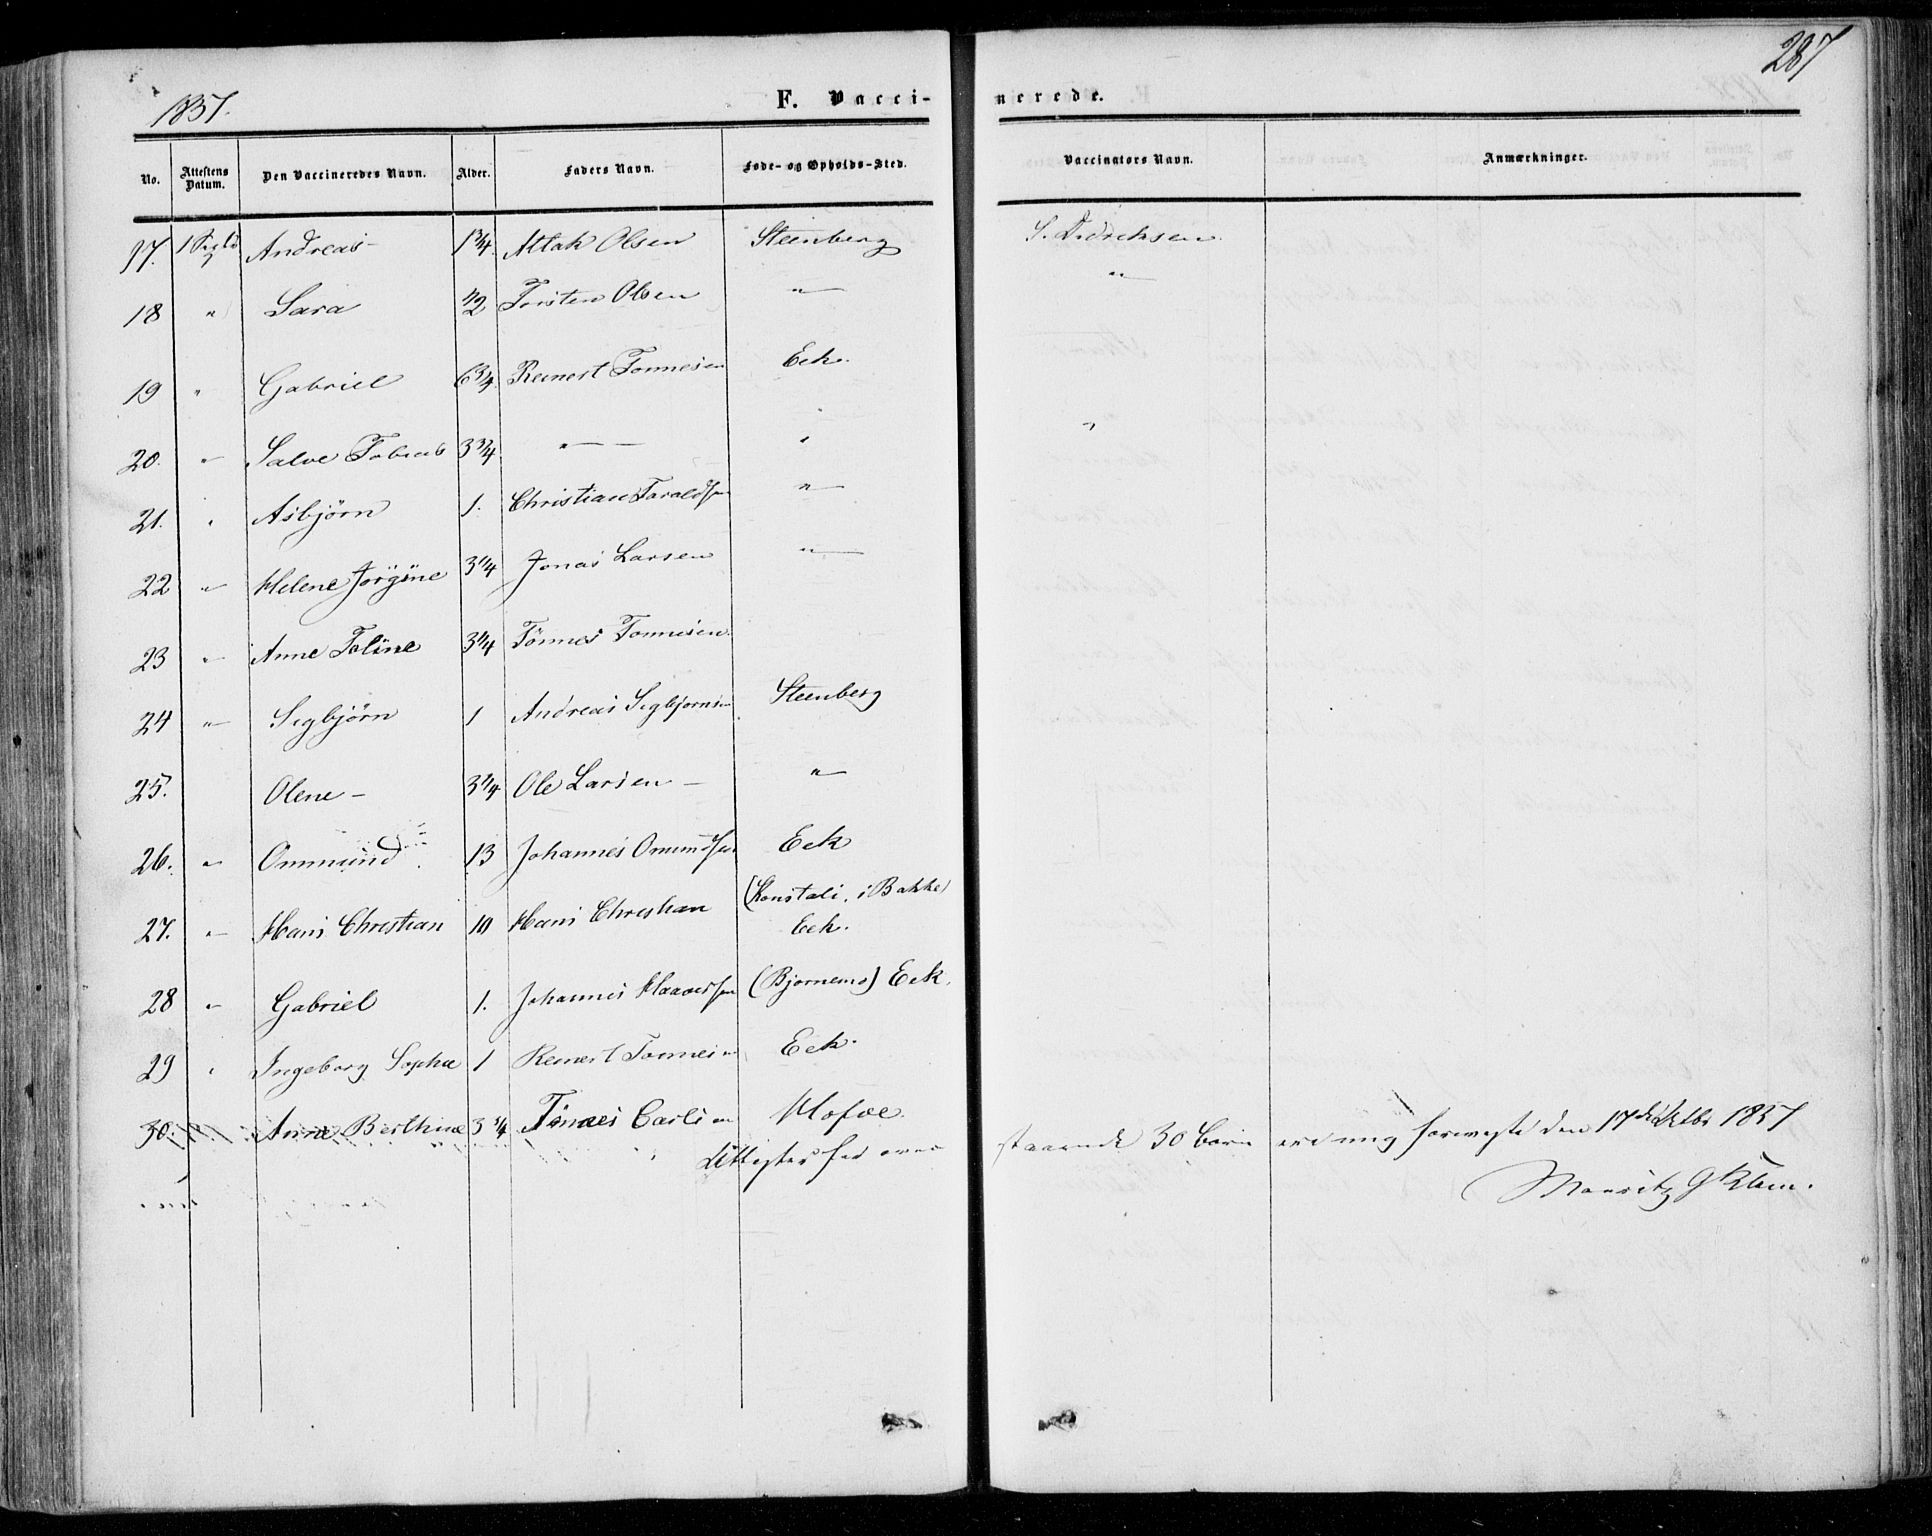 287
1857.
F. Vacci- nerede.
No. Attestens Datum. Den Vaccineredes Navn. Alder. Faders Navn. Føde- og Opholds-Sted. Vaccinators Navn. Anmærkninger.
17. Andreas- 1 3/4. Attak Olsen Steenberg S. Didriksen
18 " Sara 1/2 Torsten Olsen " "
19 " Gabriel 6 3/4. Reinert Tonnesen Eek.
20. " Salve Tobias 3 3/4 " " "
21. " Asbjørn 1. Christian Taraldsen "
22 " Helene Jørgine 3 1/4 Jonas Larsen "
23 " Anne Toline 3 1/4 Tönnes Tonnesen
24 " Sigbjørn 1 Andreas Sigbjornsen Steenberg
25. Olene - 3 1/4 Ole Larsen - "
26. " Ommund 13 Johannes Omundsen Eek
27. " Hans Christian 10 Hans Christian (Konstali, i Bakke)
Eek.
28 " Gabriel 1. Johannes Haaversen (Bjornemo) Eek.
29 " Ingeborg Sophie 1 Reinert Tonnesen Eek.
30. Anne Berthine 3 1/4 Tönnes Carlsen Hofve
Attester for oven staaende 30 børn ere mig foreviste den 17de 1857
Mauritz G Klem.